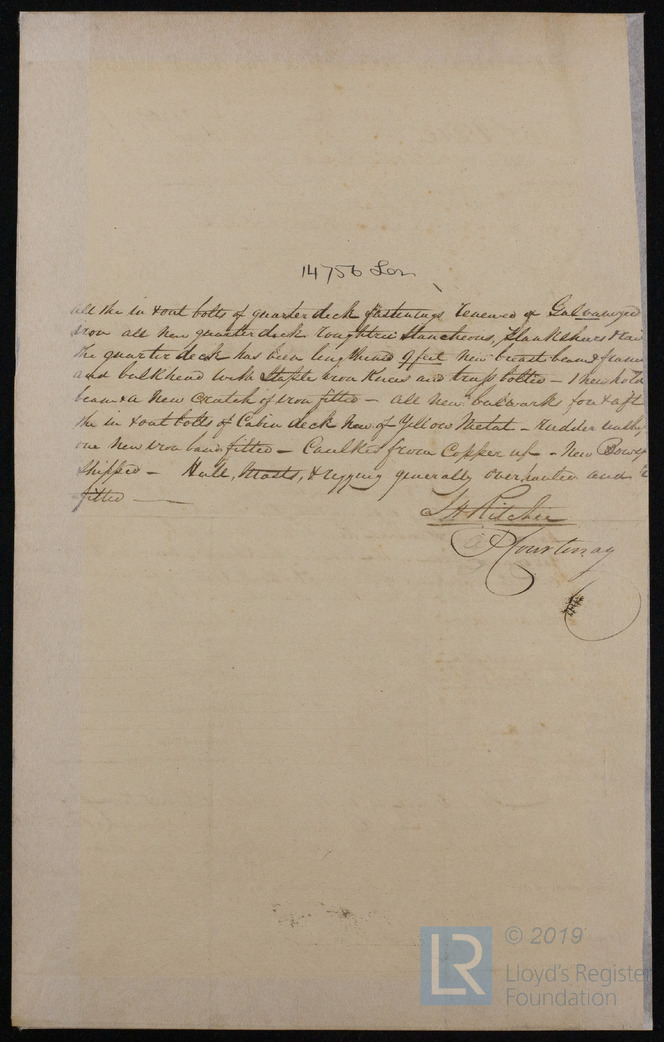 14756 Lon
all the in & out bolts of quarter deck fastenings renewed of Galvanized
Iron all new quarter deck roughtree Stancheons, Planksheers & rail
The quarter deck has been lengthened 9 feet New breast beam & frame
and bulkhead with Staple iron Knees and truss bolted – 1 new hold
beam & a new Crutch of iron fitted – all new bulwarks fore & aft
the in & out bolts of Cabin deck New of Yellow Metal – Rudder
one New iron band fitted – Caulked from Copper up – New Bowsp
Shipped – Hull, Masts, & rigging generally overhauled and
fitted —
J H Ritchie
Courtenay
LR © 2019
Lloyd's Register
Foundation